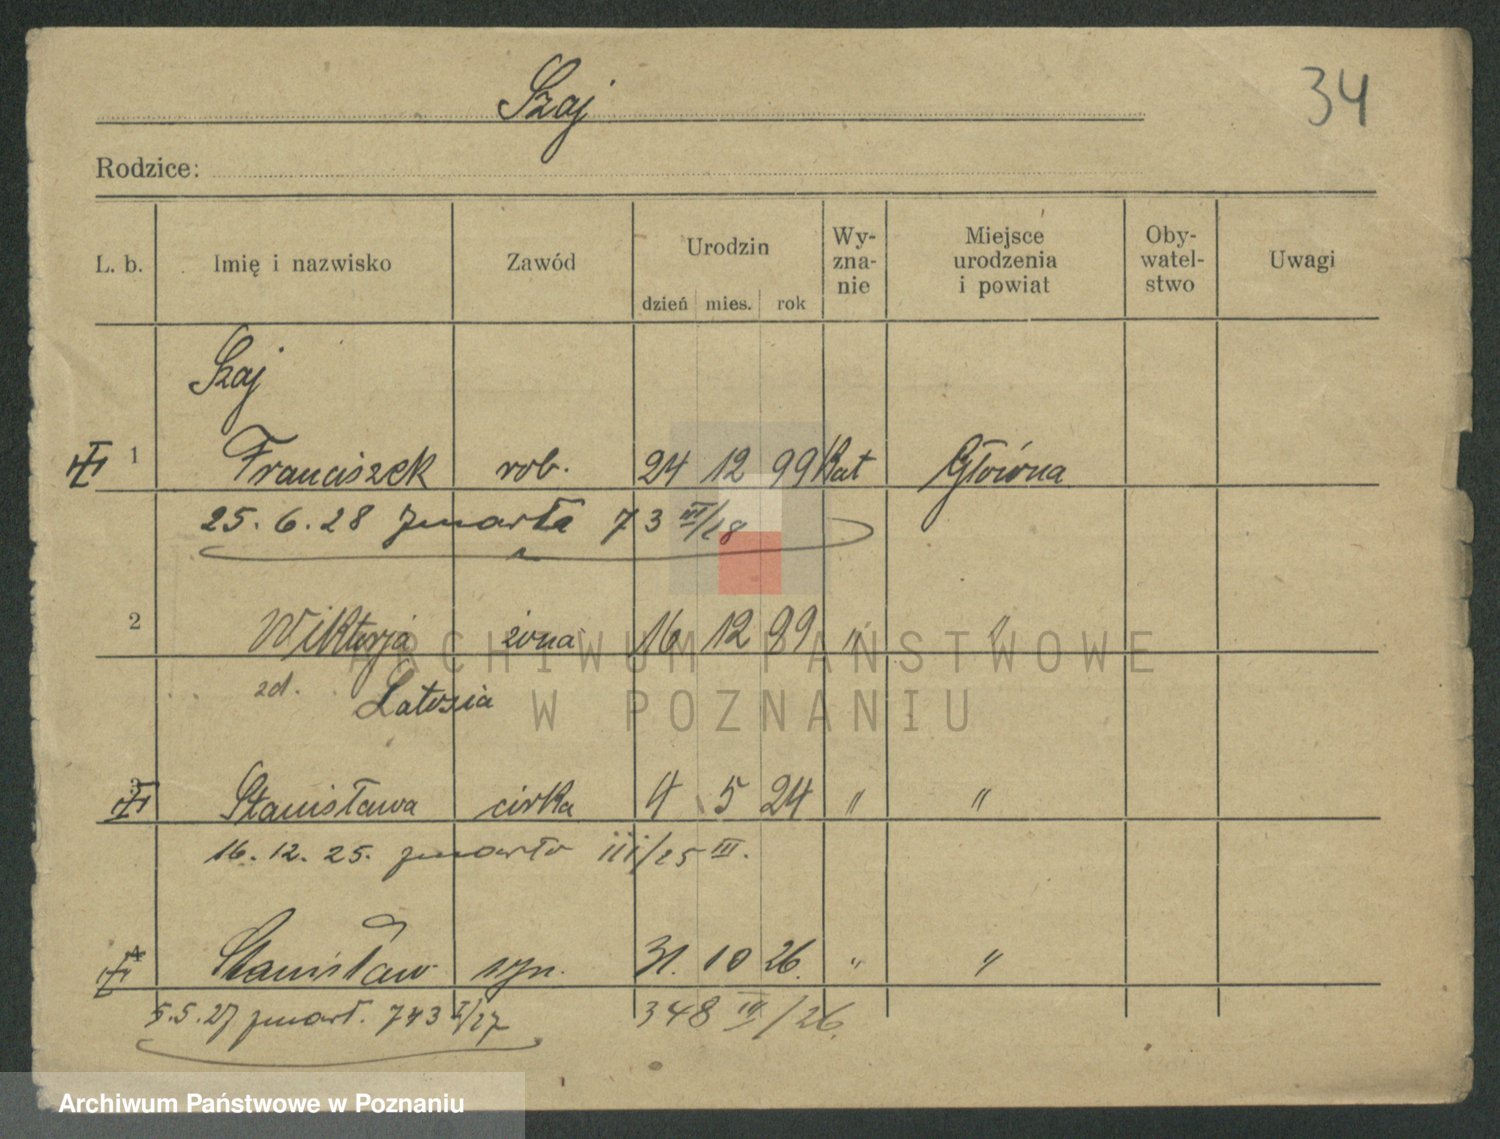 34
Szaj
Rodzice:
L. b. Imię i nazwisko Zawód Urodzin dzień mies. rok Wy-zna-nie Miejsce urodzenia i powiat Oby-watel-stwo Uwagi
Szaj
1 Franciszek rob. 24 12 99 Kat Główna
25. 6. 28 zmarła 73 III/28
2 Wiktorja żona 16 12 99 " "
zd. Latosia
3 Stanisława córka 4 5 24 " "
16. 12. 25. zmarła III/25 III.
4 Stanisław syn. 31. 10 26. " "
5.5.27 zmarł. 743 I/27 348 IV/26.
ARCHIWUM PAŃSTWOWE
W POZNANIU
Archiwum Państwowe w Poznaniu